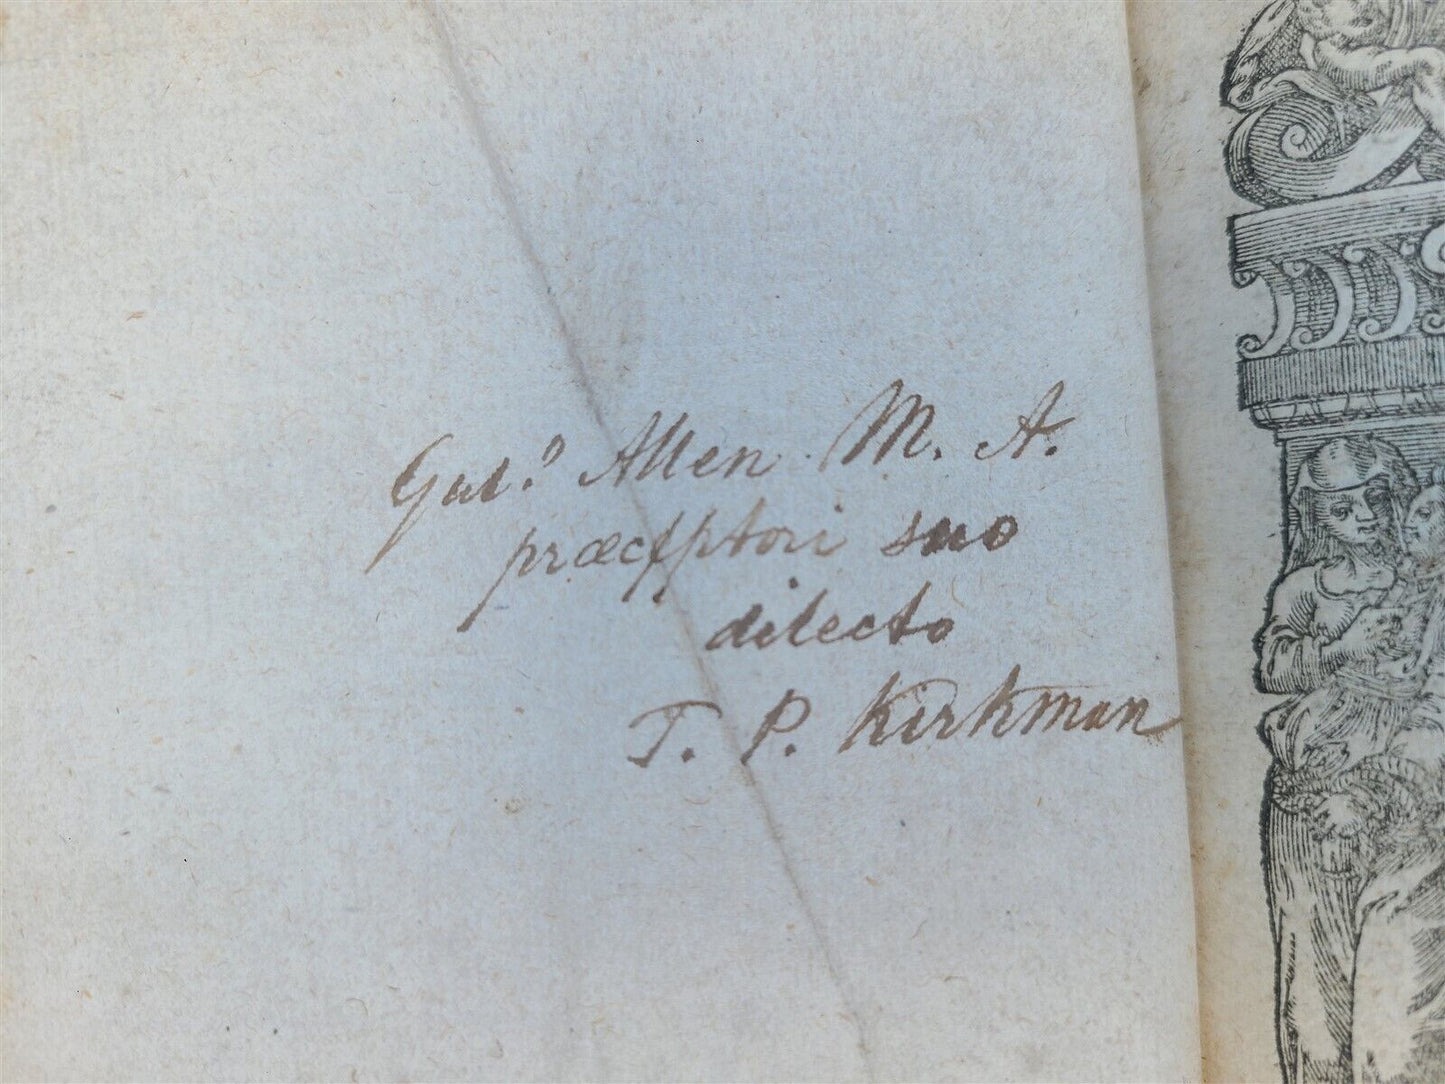 Gul.o Allen M. A.
præceptori suo
dilecto
T. P. Kirkman